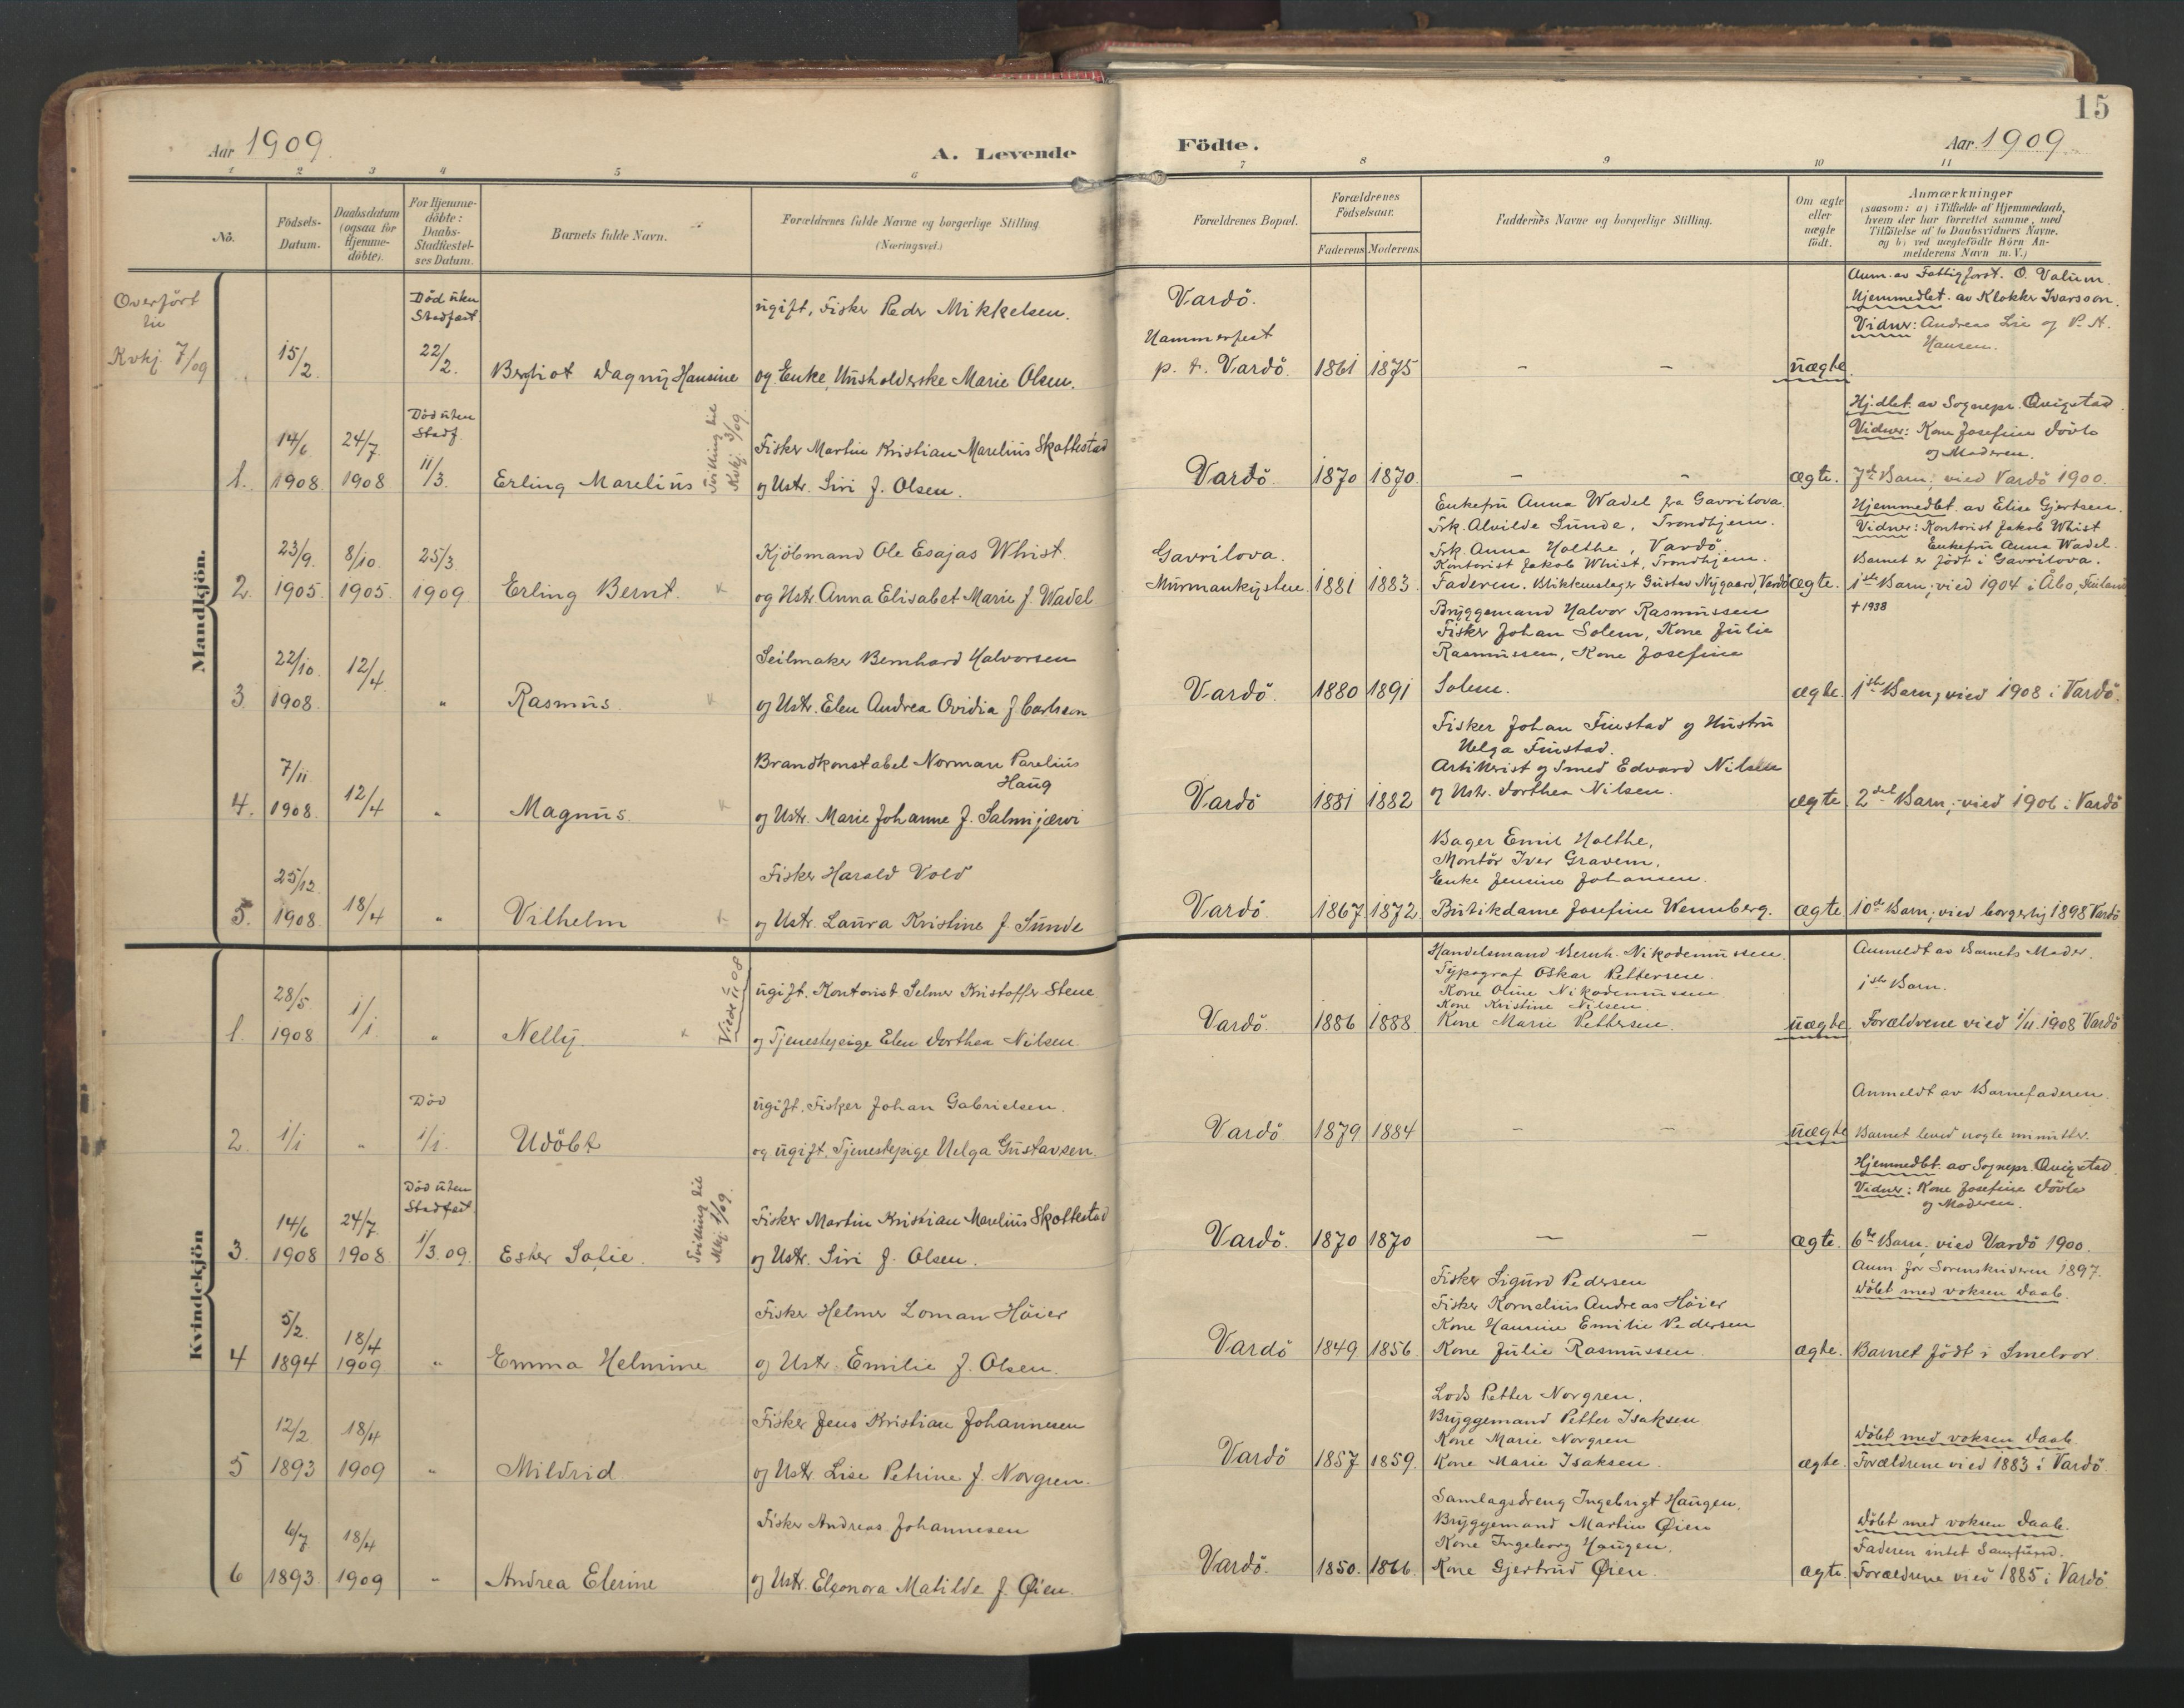 15
Aar 1909.
A. Levende
Födte.
Aar 1909
1 2 3 4 5 6 7 8 9 10 11
Nö.
Födsels-Datum.
Daabsdatum (ogsaa for Hjemme-döbte).
For Hjemme-döbte: Daabs-Stadfæstel-ses Datum.
Barnets fulde Navn.
Forældrenes fulde Navne og borgerlige Stilling (Næringsvei.)
Forældrenes Bopæl.
Forældrenes Födselsaar.
Faderens Moderens
Faddernes Navne og borgerlige Stilling.
Om ægte eller uægte födt.
Anmærkninger
(saasom: a) i Tilfælde af Hjemmedaab,
hvem der har forrettet samme, med
Tilföielse af to Daabsvidners Navne.
og b) ved uægtefödte Börn An-
melderens Navn m. V.)
Mandkjön.
Overfört
til
Kvkj. 7/09
15/2.
Död uten
Stadfæst.
22/2.
Bergliot Dagny Hansine
ugift, Fisker Peder Mikkelsen.
og Enke, Husholderske Marie Olsen.
Vardö.
Hammerfest
p. t. Vardö.
1861 1875
– –
uægte.
Anm. av Fattigforst. O. Valum.
Hjemmedbt. av Klokker Ivarsson.
Vidner: Andreas Lie og P. H.
Hansen.
1.
14/6
1908
24/7
1908
Död uten
Stadf.
11/3.
Erling Marelius
Tvilling til
Kvkj. 3/09.
Fisker Martin Kristian Marelius Skottestad
og Hstr. Siri f. Olsen.
Vardö.
1870 1870.
– –
ægte.
Hj.dbt. av Sognepr. Qvigstad.
Vidner: Kone Josefine Dövle
og Moderen.
7de Barn; vied Vardö 1900.
2.
23/9.
1905
8/10.
1905
25/3.
1909
Erling Bernt.
Kjöbmand Ole Esajas Whist.
og Hstr. Anna Elisabet Marie f. Wadel
Gavrilova.
Murmankysten
1881 1883.
Enkefru Anna Wadel fra Gavrilova.
Frk. Alvilde Sunde, Trondhjem.
Frk. Anna Holthe, Vardö.
Kontorist Jakob Whist, Trondhjem.
Faderen. Blikkenslager Gustav Nygaard, Vardö
ægte.
Hjemmedbt. av Elise Gjertsen.
Vidner: Kontorist Jakob Whist
Enkefru Anna Wadel.
Barnet er födt i Gavrilova.
1ste Barn; vied 1904 i Åbo, Finland
† 1938
3
22/10
1908.
12/4
"
Rasmus.
Seilmaker Bernhard Halvorsen
og Hstr. Elen Andrea Ovidia f. Carlsen
Vardö.
1880 1891
Bryggemand Halvor Rasmussen
Fisker Johan Solem, Kone Julie
Rasmussen, Kone Josefine
Solem.
ægte.
1ste Barn; vied 1908 i Vardö.
4.
7/11
1908.
12/4
"
Magnus.
Brandkonstabel Norman Parelius
Haug
og Hstr. Marie Johanne f. Salmijærvi
Vardö
1881 1882
Fisker Johan Finstad og Hustru
Helga Finstad.
Artillerist og Smed Edvard Nilsen
og Hstr. Dorthea Nilsen.
ægte.
2det Barn; vied 1906 i Vardö
5.
25/12.
1908.
18/4
"
Vilhelm
Fisker Harald Vold
og Hstr. Laura Kristine f. Sunde
Vardö.
1867 1872
Bager Emil Holthe,
Montör Iver Gravem,
Enke Jensine Johansen.
Butikdame Josefine Wennberg.
ægte
10de Barn; vied borgerlig 1898 Vardö
Kvindekjön
1.
28/5.
1908
1/1.
"
Nelly.
Viede 1/11 08
ugift, Kontorist Selmer Kristoffer Stene
og Tjenestepige Elen Dorthea Nilsen.
Vardö.
1886 1888.
Handelsmand Bernh. Nikodemussen.
Typograf Oskar Pettersen.
Kone Oline Nikodemussen
Kone Kristine Nilsen.
Kone Marie Pettersen.
uægte
Anmeldt av Barnets Moder.
1ste Barn.
Forældrene vied 1/11 1908 Vardö
2.
1/1
"
Död
1/1.
Udöbt
ugift, Fisker Johan Gabrielsen.
og ugift, Tjenestepige Helga Gustavsen.
Vardö
1879 1884
– –
uægte
Anmeldt av Barnefaderen.
Barnet leved nogle minutter.
3.
14/6
1908
24/7
1908
Död uten
Stadfæst.
1/3.09.
Ester Sofie.
Tvilling til
Mkj. 1/09.
Fisker Martin Kristian Marelius Skottestad
og Hstr. Siri f. Olsen.
Vardö.
1870 1870
– –
ægte.
Hjemmedbt. av Sognepr. Qvigstad.
Vidner: Kone Josefine Dövle
og Moderen.
6te Barn; vied Vardö 1900.
4
5/2.
1894
18/4
1909
"
Emma Helmine
Fisker Helmer Loman Höier
og Hstr. Emilie f. Olsen.
Vardö
1849 1856.
Fisker Sigurd Pedersen
Fisker Kornelius Andreas Höier
Kone Hansine Emilie Pedersen
Kone Julie Rasmussen.
ægte.
Anm. for Sorenskriveren 1897.
Döbt med voksen Daab.
Barnet födt i Smelror.
5
12/2
1893
18/4
1909
"
Mildrid
Fisker Jens Kristian Johannesen
og Hstr. Lise Petrine f. Norgren.
Vardö
1857 1859.
Lods Petter Norgren.
Bryggemand Petter Isaksen
Kone Marie Norgren
Kone Marie Isaksen.
ægte.
Döbt med voksen Daab.
Forældrene vied 1883 i Vardö.
6
6/7
1893.
18/4
1909
"
Andrea Elerine
Fisker Andreas Johannesen
og Hstr. Eleonora Matilde f. Øien.
Vardö.
1850. 1866.
Samlagsdreng Ingebrigt Haugen.
Bryggemand Martin Øien
Kone Ingeborg Haugen.
Kone Gjertrud Øien.
ægte.
Döbt med voksen Daab.
Faderen intet Samfund.
Forældrene vied 1885 i Vardö